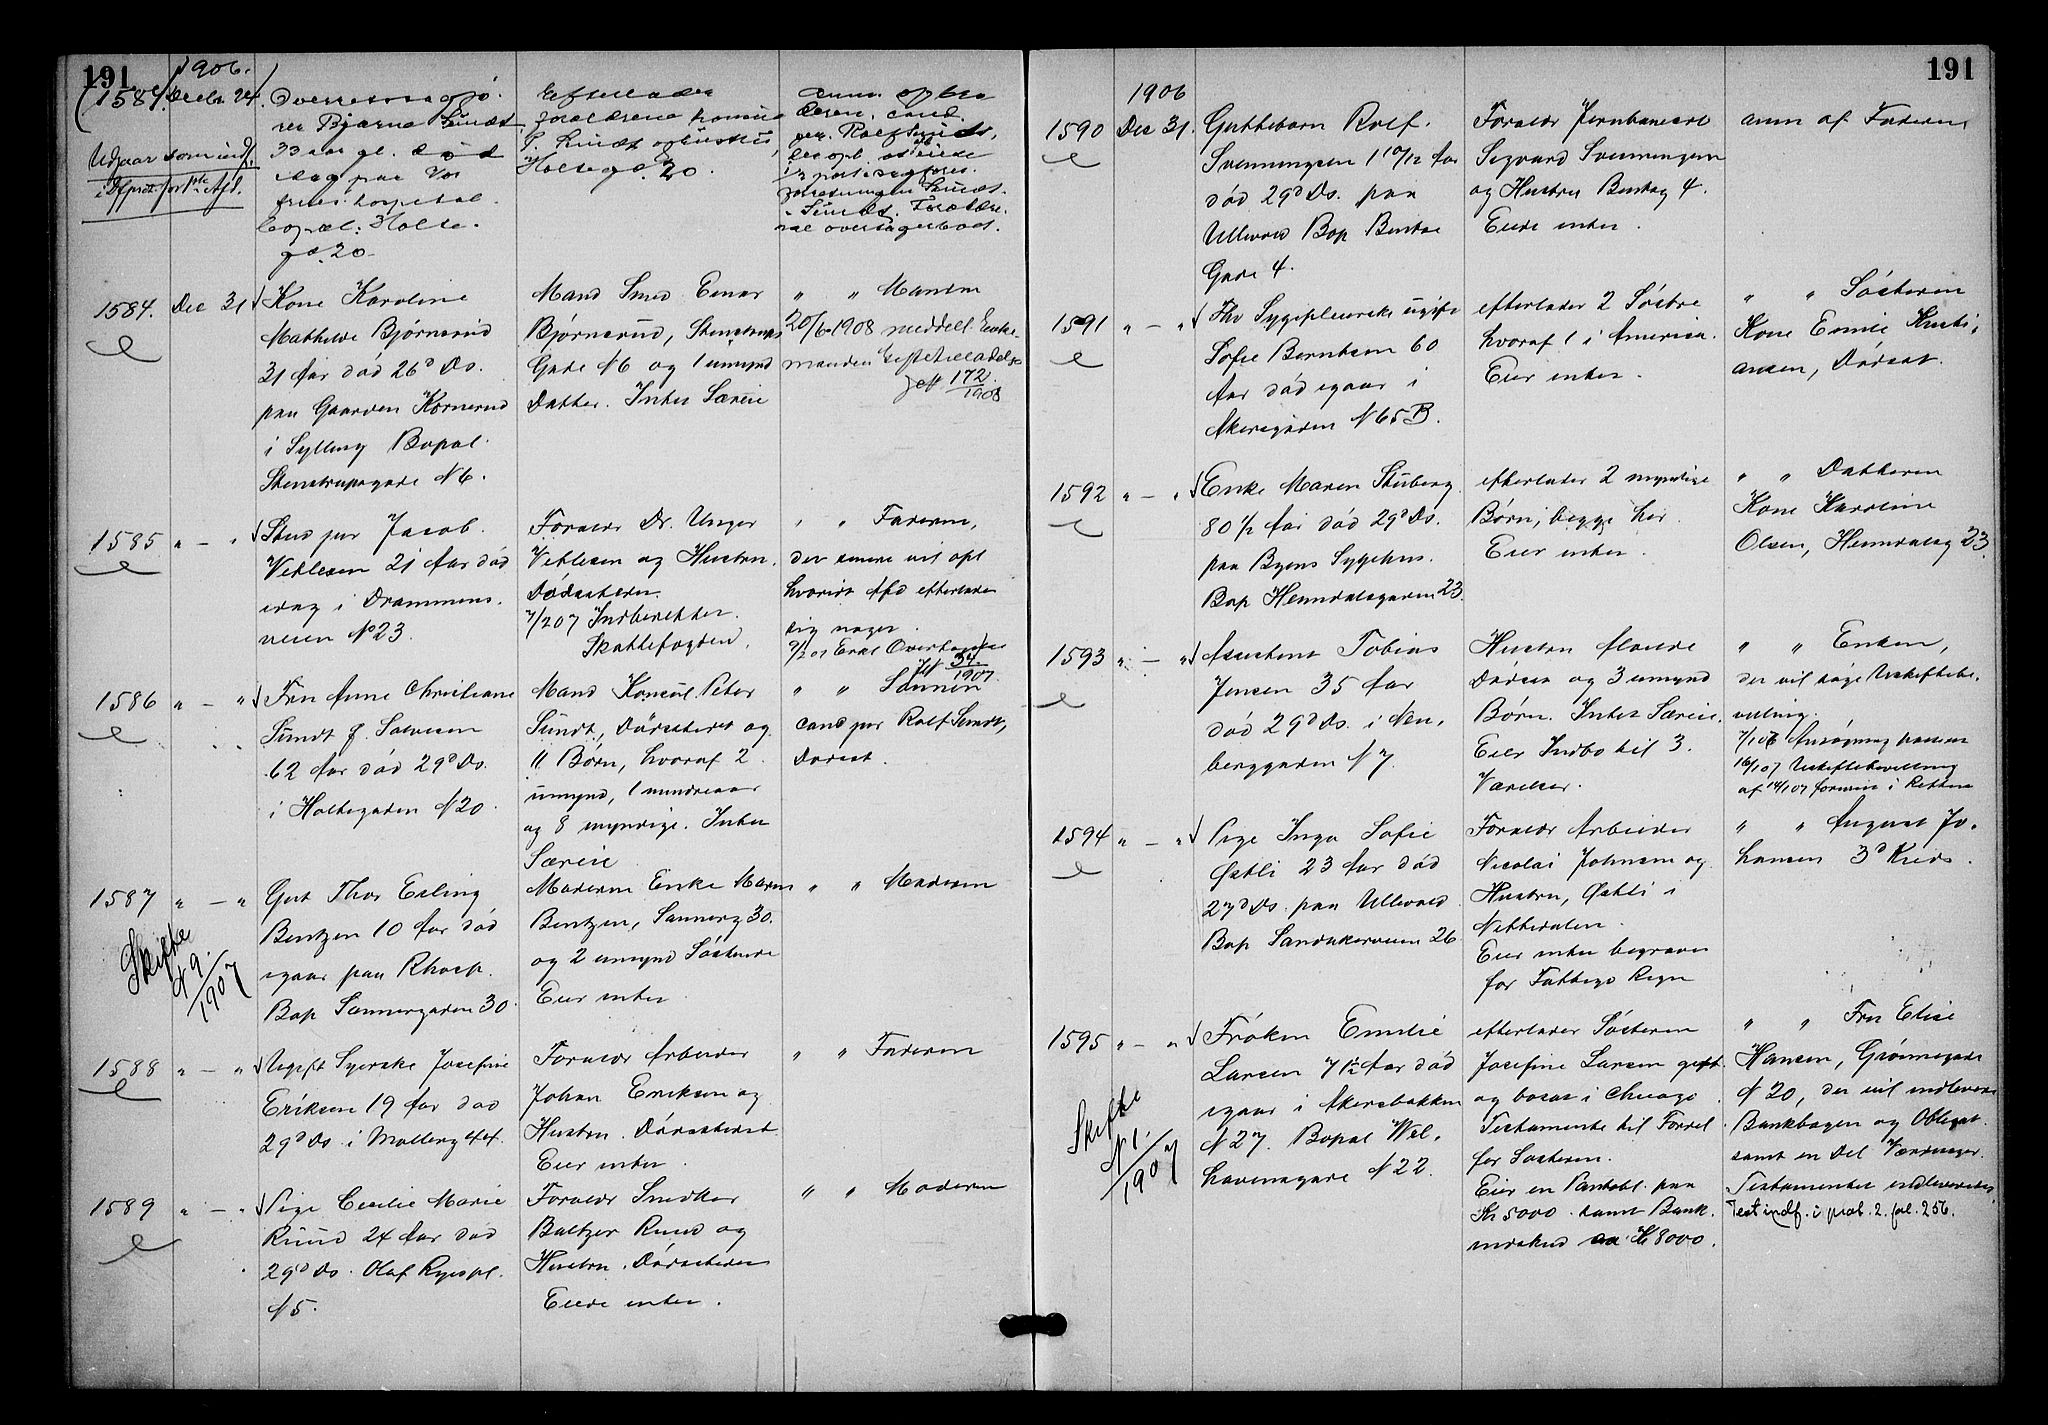 191
1906.
(1584. Decbr 24.
Udgaar som indf.
Overretssagfø-
rer Bjarne Sundt
33 aar gl. død
idag paa Vor
frues hospital.
Bopæl: Holte-
gd. 20
Efterlader
forældrene
P. Sundt og hustru,
Holtegd. 20.
anm. af bro
deren, cand.
jur. Rolf Sundt,
1584. Dec 31
Kone Karoline
Mathilde Bjørnerud
31 Aar død 26d Ds.
paa Gaarden Kornerud
i Sylling Bopæl
Stenstrupsgade N 6.
Mand Smed Einar
Bjørnerud, Stenstrups
Gade N 6 og 1 umynd
Datter. Intet Særeie
" " Manden
20/6-1908 meddelt Enke-
manden Giftetilladelse
Jr 172/1908
1585 " — "
Stud jur Jacob
Vetlesen 21 Aar død
idag i Drammens-
veien No 23.
Forældr Dr. Unger
Vetlesen og Hustru.
Dødsstedet
7/2 07 Indberettet
Skattefogden.
" " Faderen,
der senere vil opl
hvorvidt Afd efterlader
sig noget.
Jr 34/1907
1586 " — "
Fru Anne Christiane
Sundt f. Salvesen
62 Aar død 29d Ds.
i Holtegaden N 20
Mand Konsul Peter
Sundt, Dødsstedet og
11 Børn, hvoraf 2
umynd, 1 mindreaar
og 8 myndige. Intet
Særeie
" " Sønnen
cand jur Rolf Sundt,
Dødsst.
1587 " — "
Skifte
N 9.
1907
Gut Thor Esling
Bentzen 10 Aar død
igaar paa Rhosp.
Bop Sannergaden 30
Moderen Enke Maren
Bentzen, Sannerg 30.
og 2 umynd Søskende
Eier intet
" " Moderen
1588 " — "
Ugift Syerske Josefine
Eriksen 19 Aar død
29d Ds. i Møllerg 44.
Forældr Arbeider
Johan Eriksen og
Hustru. Dødsstedet
Eier intet
" " Faderen
1589 " — "
Pige Cecilie Marie
Ruud 24 Aar død
29d Ds. Olaf Ryespl.
N 5.
Forældr Snedker
Baltzer Ruud og
Hustru. Dødsstedet
Eiede intet.
" " Moderen
191
1906
1590 Dec 31.
Guttebarn Rolf
Svenningsen 1 10/12 Aar
død 29d Ds. paa
Ullevold Bop Bentse
Gade 4.
Forældr Jernbanearb
Sigvard Svenningsen
og Hustru Bentseg 4.
Eiede intet.
anm af Faderen
1591 " — "
Fhv Sygepleierske ugift
Sofie Berntsen 60
Aar død igaar i
Akersgaden N 65 B.
efterlader 2 Søstre
hvoraf 1 i America.
Eier intet.
" " Søsteren
Kone Emilie Kristi-
ansen, Dødsst.
1592 " — "
Enke Maren Stuberg
80 1/2 Aar død 29d Ds.
paa Byens Sygehus.
Bop Heimdalsgaden 23.
efterlader 2 myndige
Børn, begge her.
Eier intet.
" " Datteren
Kone Karoline
Olsen, Heimdalsg 23.
1593 " — "
Assistent Tobias
Jensen 35 Aar
død 29d Ds. i Nan-
berggaden N 7.
Hustru
Dødsst og 3 umynd
Børn. Intet Særeie.
Eier Indbo til 3
Værelser.
" " Enken,
der vil søge Uskiftebe-
villing.
7/1 07 Ansøgning
16/1 07 Uskiftebevilling
af 14/1 07 forevist i Retten
1594 " — "
Pige Inga Sofie
Østli 23 Aar død
27d Ds. paa Ullevold
Bop Sandakerveien 26
Forældr Arbeider
Nicolai Johnsen og
Hustru, Østli i
Nittedalen.
Eier intet begraves
for Fattigv Regn
" " August Jo-
hansen 3d Kreds.
1595 " — "
Skifte
N 1.
1907
Frøken Emilie
Larsen 71 1/2 Aar død
igaar i Akersbakken
N 27. Bopæl Wel-
havensgade N 22.
efterlader Søsteren
Josefine Larsen gift
og bosat i Chicago.
Testamente til Fordel
for Søsteren.
Eier en Pantobl. paa
Kr 5000 samt Bank-
indskud Kr 8000.
" " Fru Elise
Hansen, Grønnegade
N 20, der vil indlevere
Bankbogen og Obligat.
samt en Del Værdisager.
Testamentet indleveredes
Test indf. i prot. 2. fol. 256.